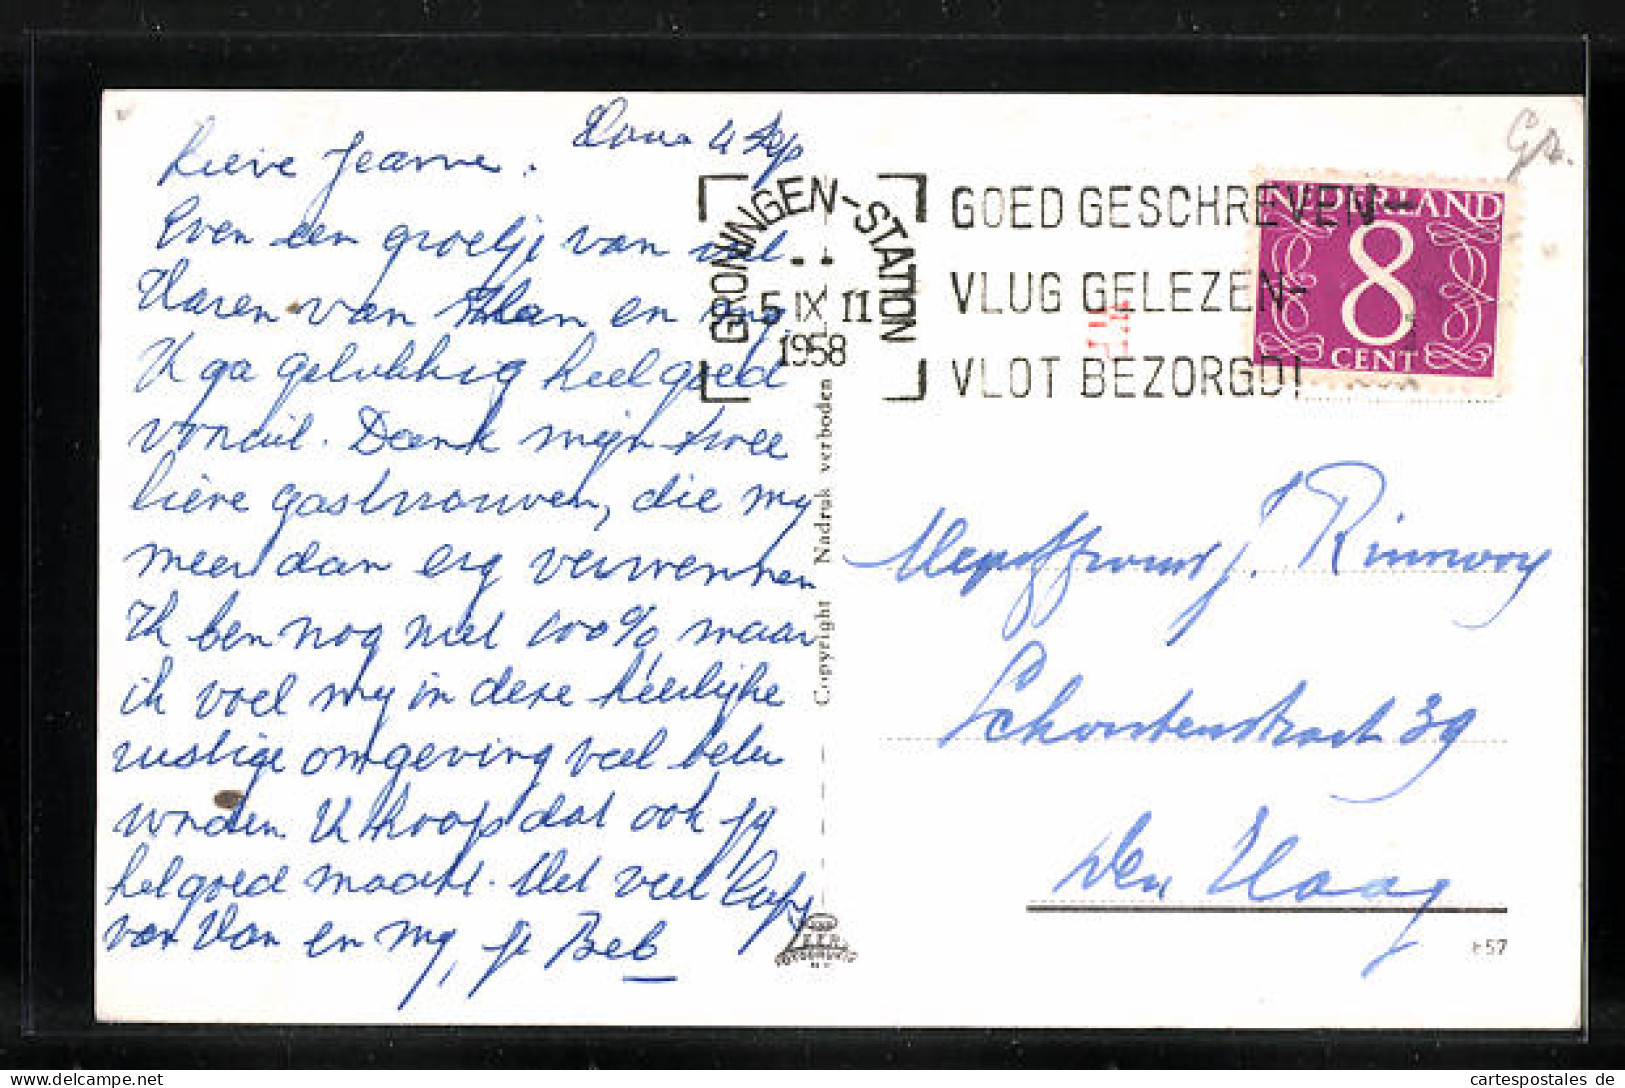 Lieve Jeanne.
4 Sep
Even een groetje van uit
Haren van Han en my
Ik ga gelukkig heel goed
vooruit. Dank mijn twee
lieve gastvrouwen, die my
meer dan erg verwennen
Ik ben nog niet 100% maar
ik voel my in deze heerlijke
rustige omgeving veel beter
worden Ik hoop dat ook jy
het goed maakt. Met veel liefs
van Han en my, je Beb
GRONINGEN-STATION
5 IX 11
1958
GOED GESCHREVEN-
VLUG GELEZEN-
VLOT BEZORGD!
NEDERLAND
8
CENT
Gr.
Copyright Nadruk verboden
Mejuffrouw J. Rinrooy
Schoutenstraat 39
Den Haag
£57
cartespostales de